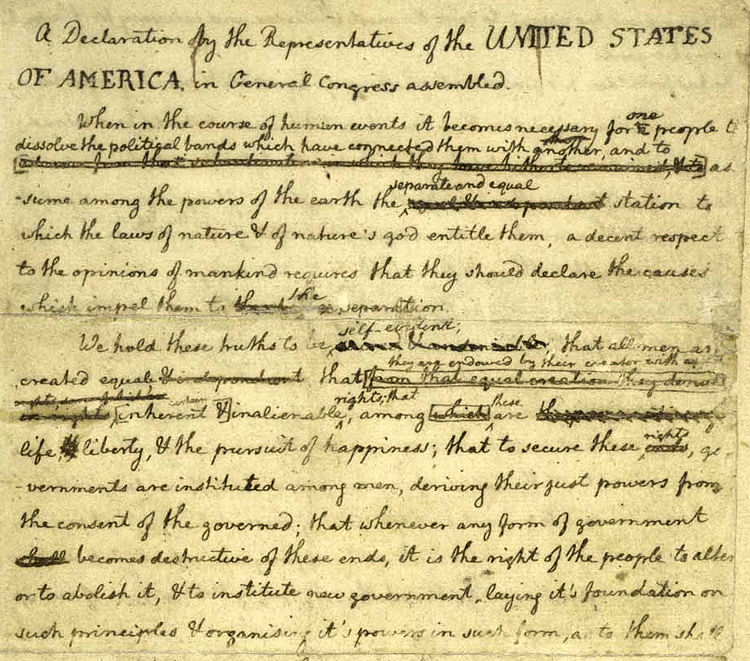 A Declaration by the Representatives of the UNITED STATES
OF AMERICA, in General Congress assembled.
When in the course of human events it becomes necessary for one people to
dissolve the political bands which have connected them with another, and to
as
-sume among the powers of the earth the separate and equal station to
which the laws of nature & of nature's god entitle them, a decent respect
to the opinions of mankind requires that they should declare the causes
which impel them to the separation.
self-evident;
We hold these truths to be that all men are
they are endowed by their creator with
created equal & independent that from that equal creation they derive
rights; that these
in rights inherent & inalienable, among which are
life, liberty, & the pursuit of happiness; that to secure these rights, go
-vernments are instituted among men, deriving their just powers from
the consent of the governed; that whenever any form of government
shall becomes destructive of these ends, it is the right of the people to alter
or to abolish it, & to institute new government, laying it's foundation on
such principles & organising it's powers in such form, as to them shall